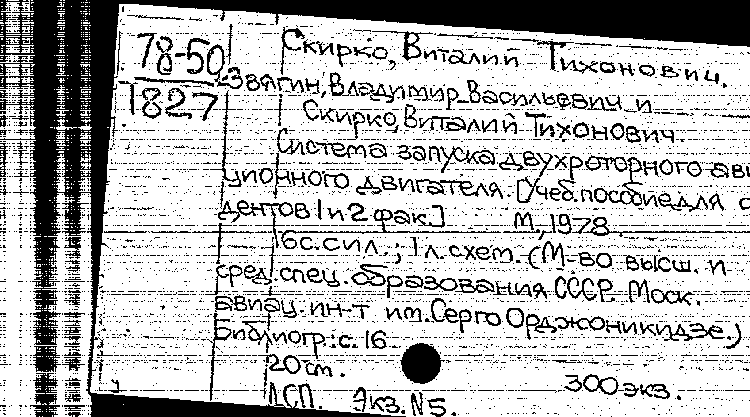 78-50
1827
Скирко, Виталий Тихонович.
Звягин, Владимир Васильевич и
Скирко, Виталий Тихонович.
Система запуска двухроторного ави
ционного двигателя. [Учеб. пособие для с
дентов 1 и 2 фак.] М., 1978.
16 с. с ил.; 1 л. схем. (М-во высш. и
сред. спец. образования СССР. Моск.
авиац. ин-т им. Серго Орджоникидзе.)
Библиогр.: с. 16
20 см. 300 экз.
ЛСП. Экз. N 5.